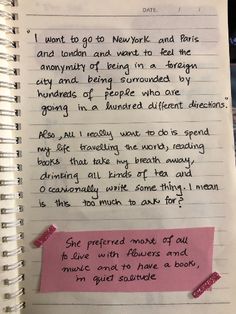 DATE / /
"I want to go to New York and Paris
and London and want to feel the
anonymity of being in a foreign
city and being surrounded by
hundreds of people who are
going in a hundred different directions."
Also, All I really want to do is spend
my life travelling the world, reading
books that take my breath away,
drinking all kinds of tea and
Ocasionally write some thing. I mean
is this too much to ask for?
She preferred most of all
to live with flowers and
music and to have a book,
in quiet solitude